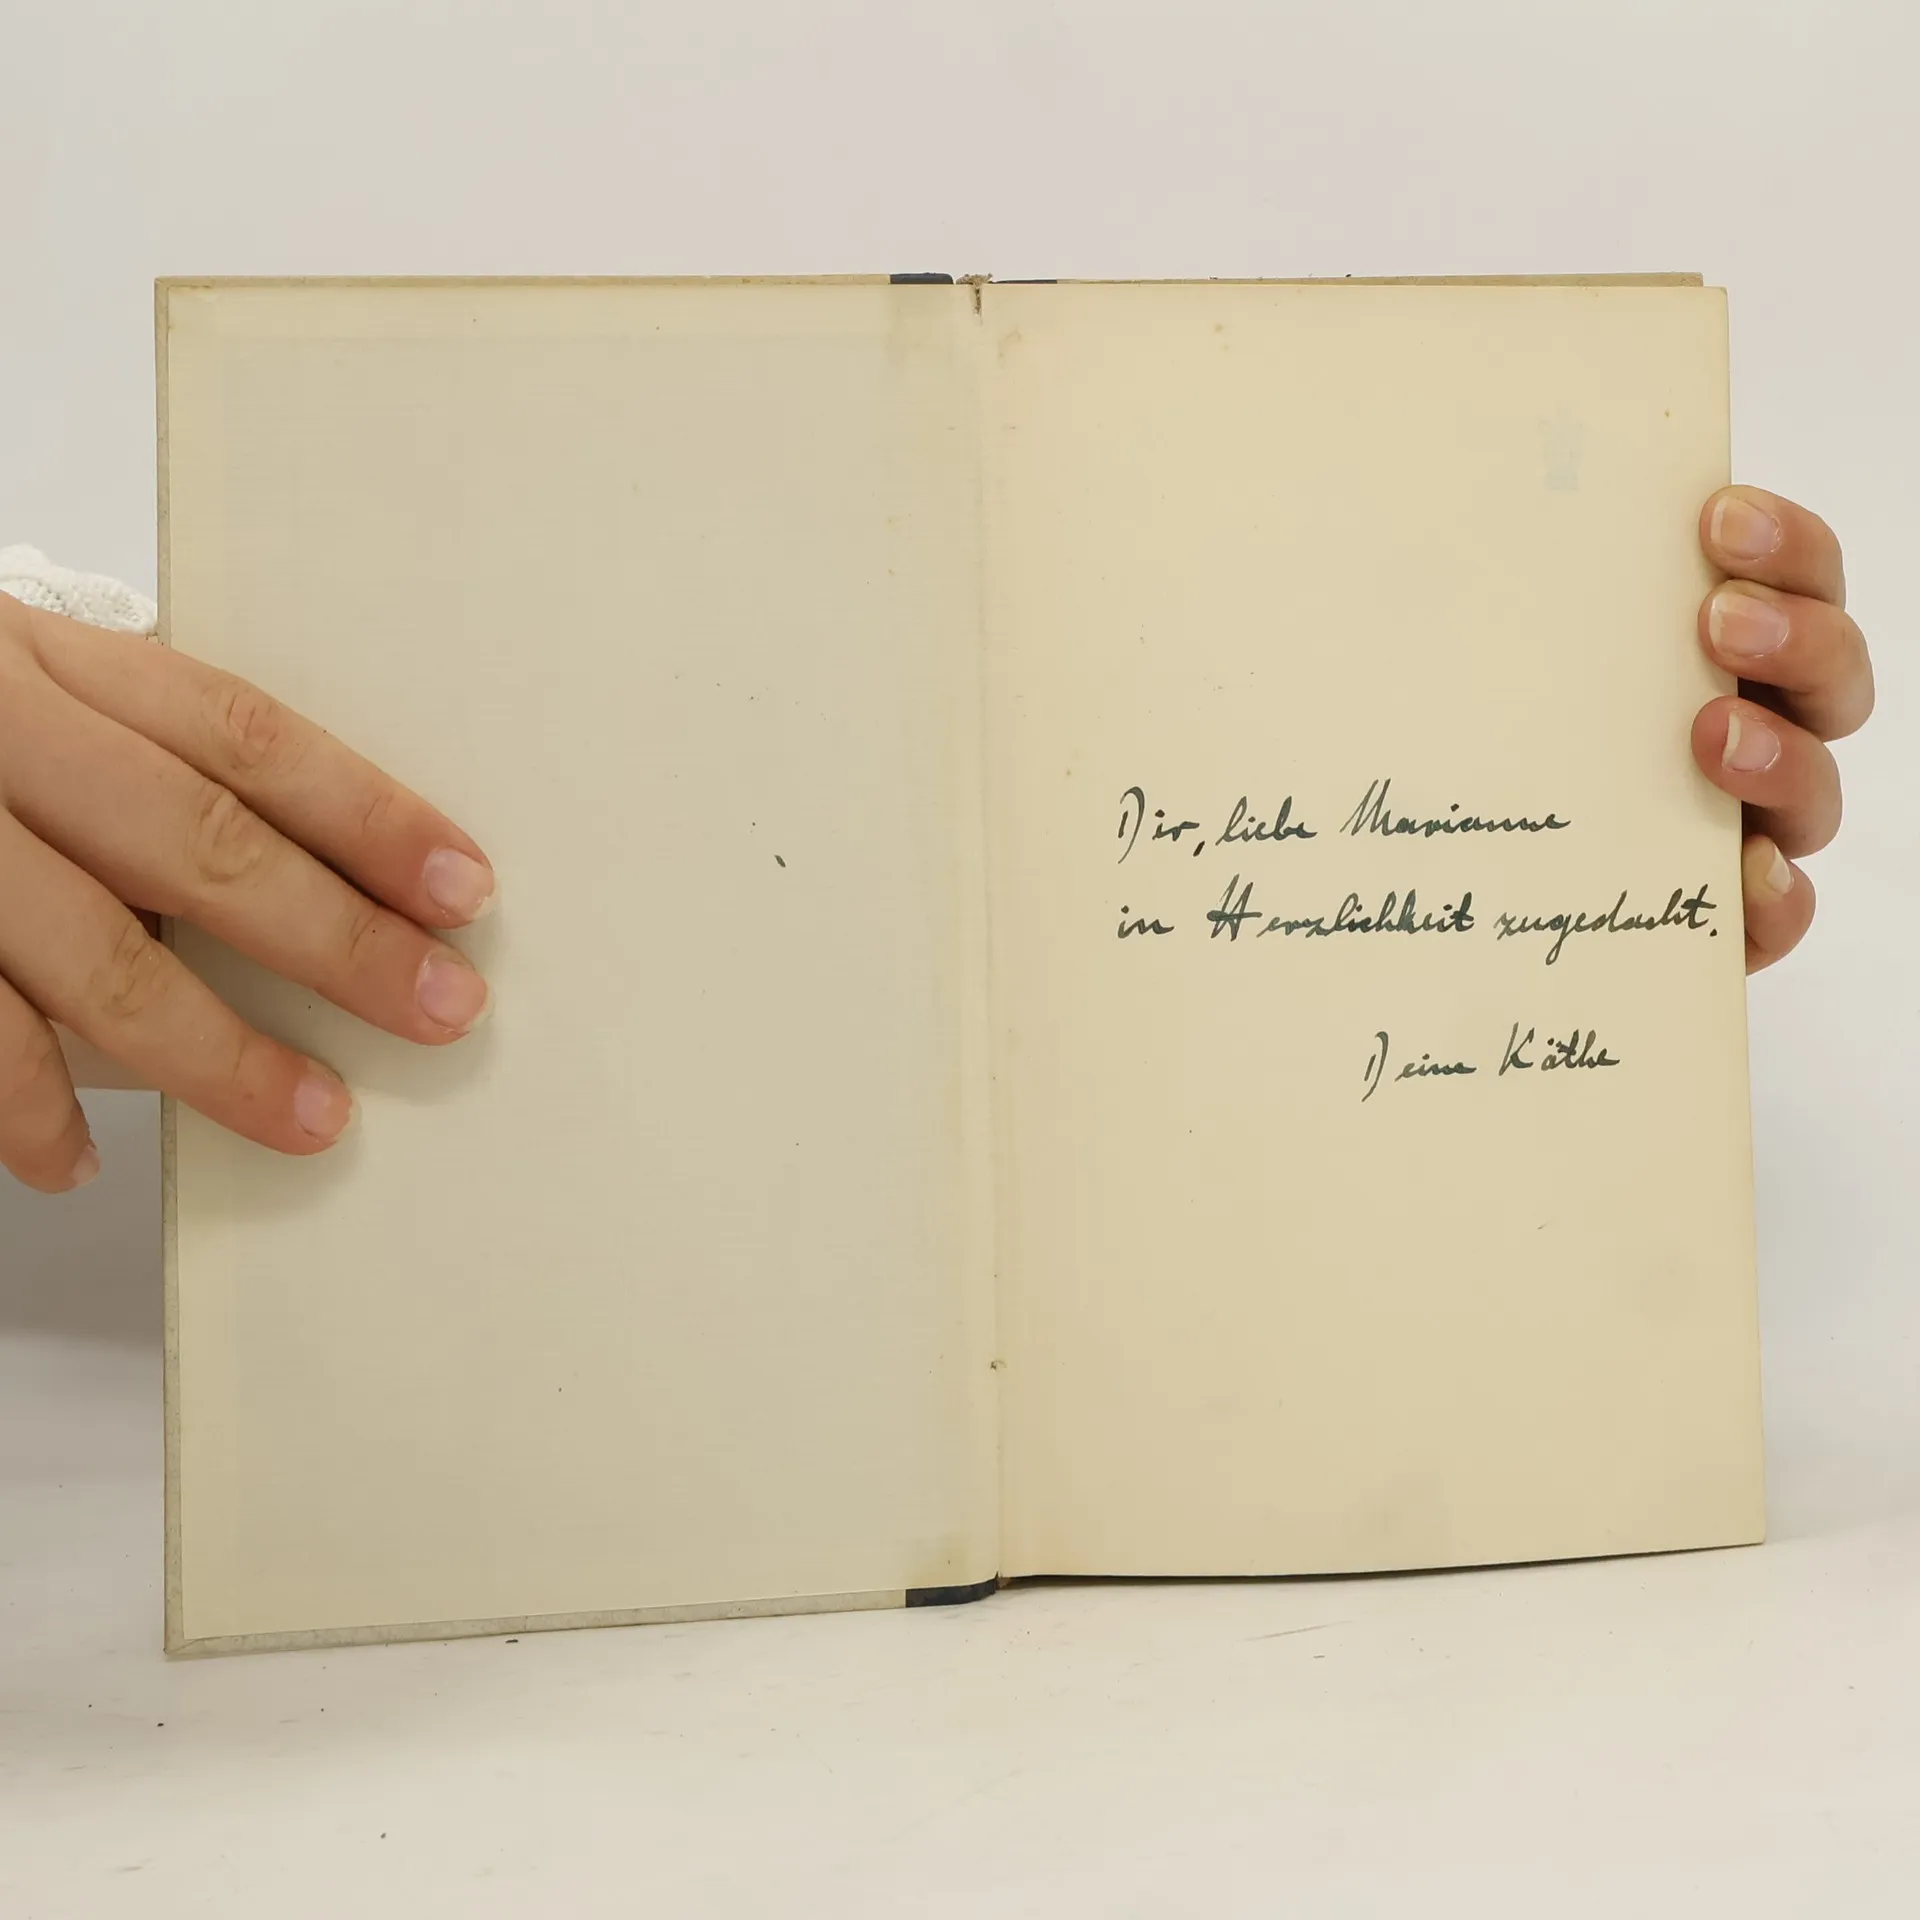 Dir, liebe Marianne
in Herzlichkeit zugedacht.
Deine Käthe